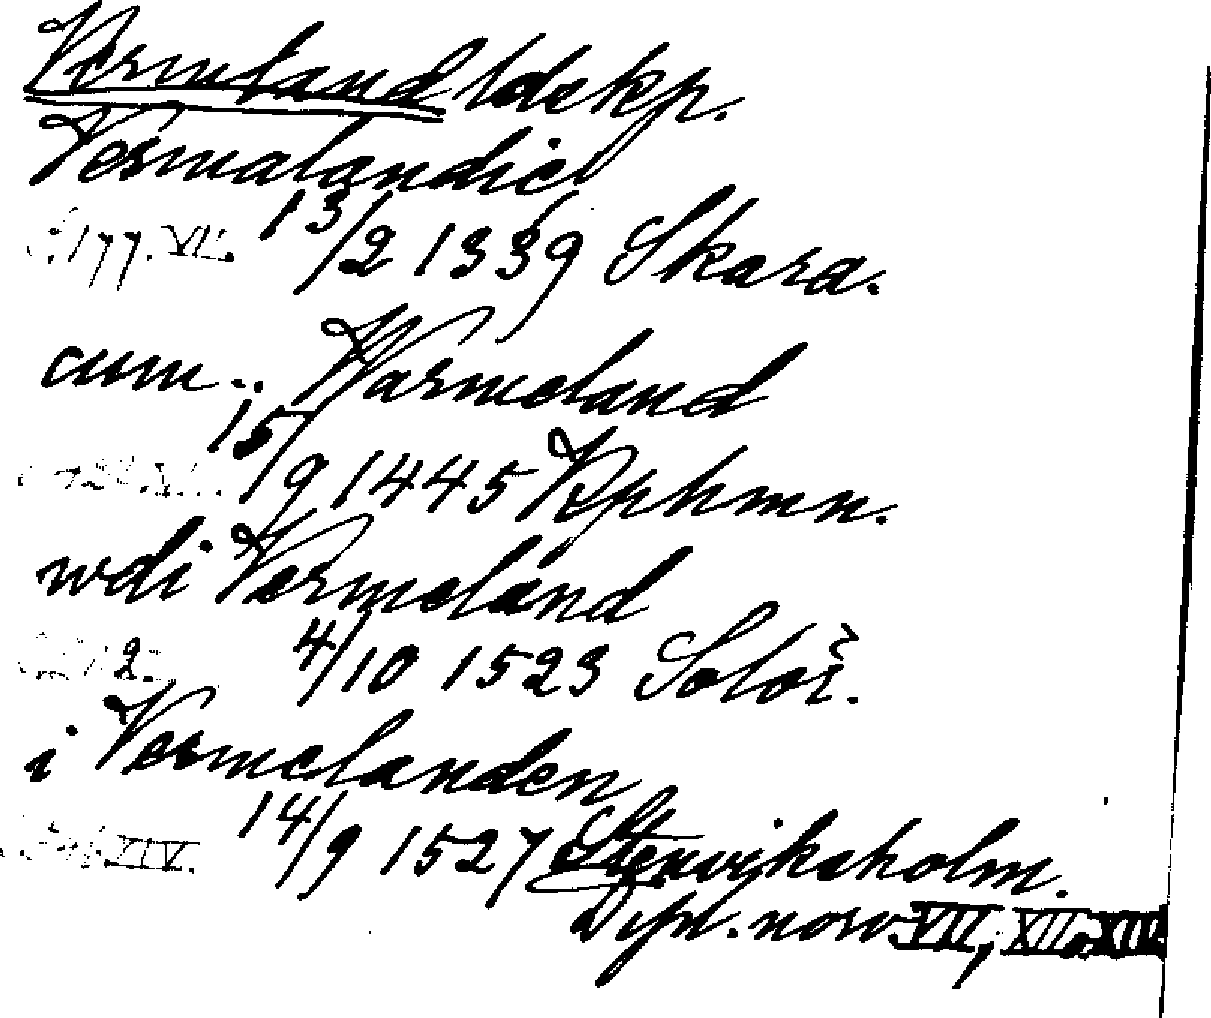 Vermland ldskp.
Vermalandie
177. VII. 13/2 1339 Skara.
cum .. Warmeland
15/9 1445 Kphmn.
wdi Vermeland
4/10 1523 Solör.
i Vermelanden
XIV. 14/9 1527 Stenviksholm.
Dipl. norv. VII, XII o XIV